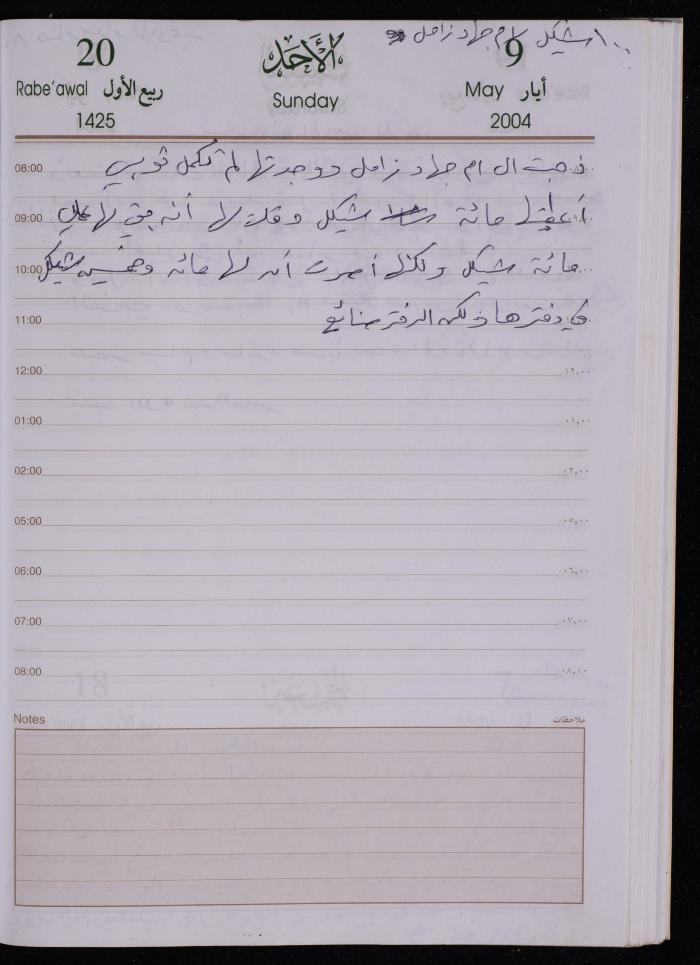 ١٠٠ شيكل ام جهاد زامل
20
الأحد
9
Rabe'awal ربيع الأول
Sunday
May أيار
1425
2004
08:00 ذهبت ال ام جهاد زامل ووجدتها لم تكمل ثوبي
09:00 أعطيتها مائة شيكل وقلت لها أنه بقي لها علي
10:00 مائة شيكل ولكنها أصرت أنه لها مائه وخمسين شيكل
11:00 في دفترها ولكن الدفتر ضائع
12:00 ١٢,٠٠
01:00 ٠١,٠٠
02:00 ٠٢,٠٠
05:00 ٠٥,٠٠
06:00 ٠٦,٠٠
07:00 ٠٧,٠٠
08:00 ٠٨,٠٠
Notes ملاحظات